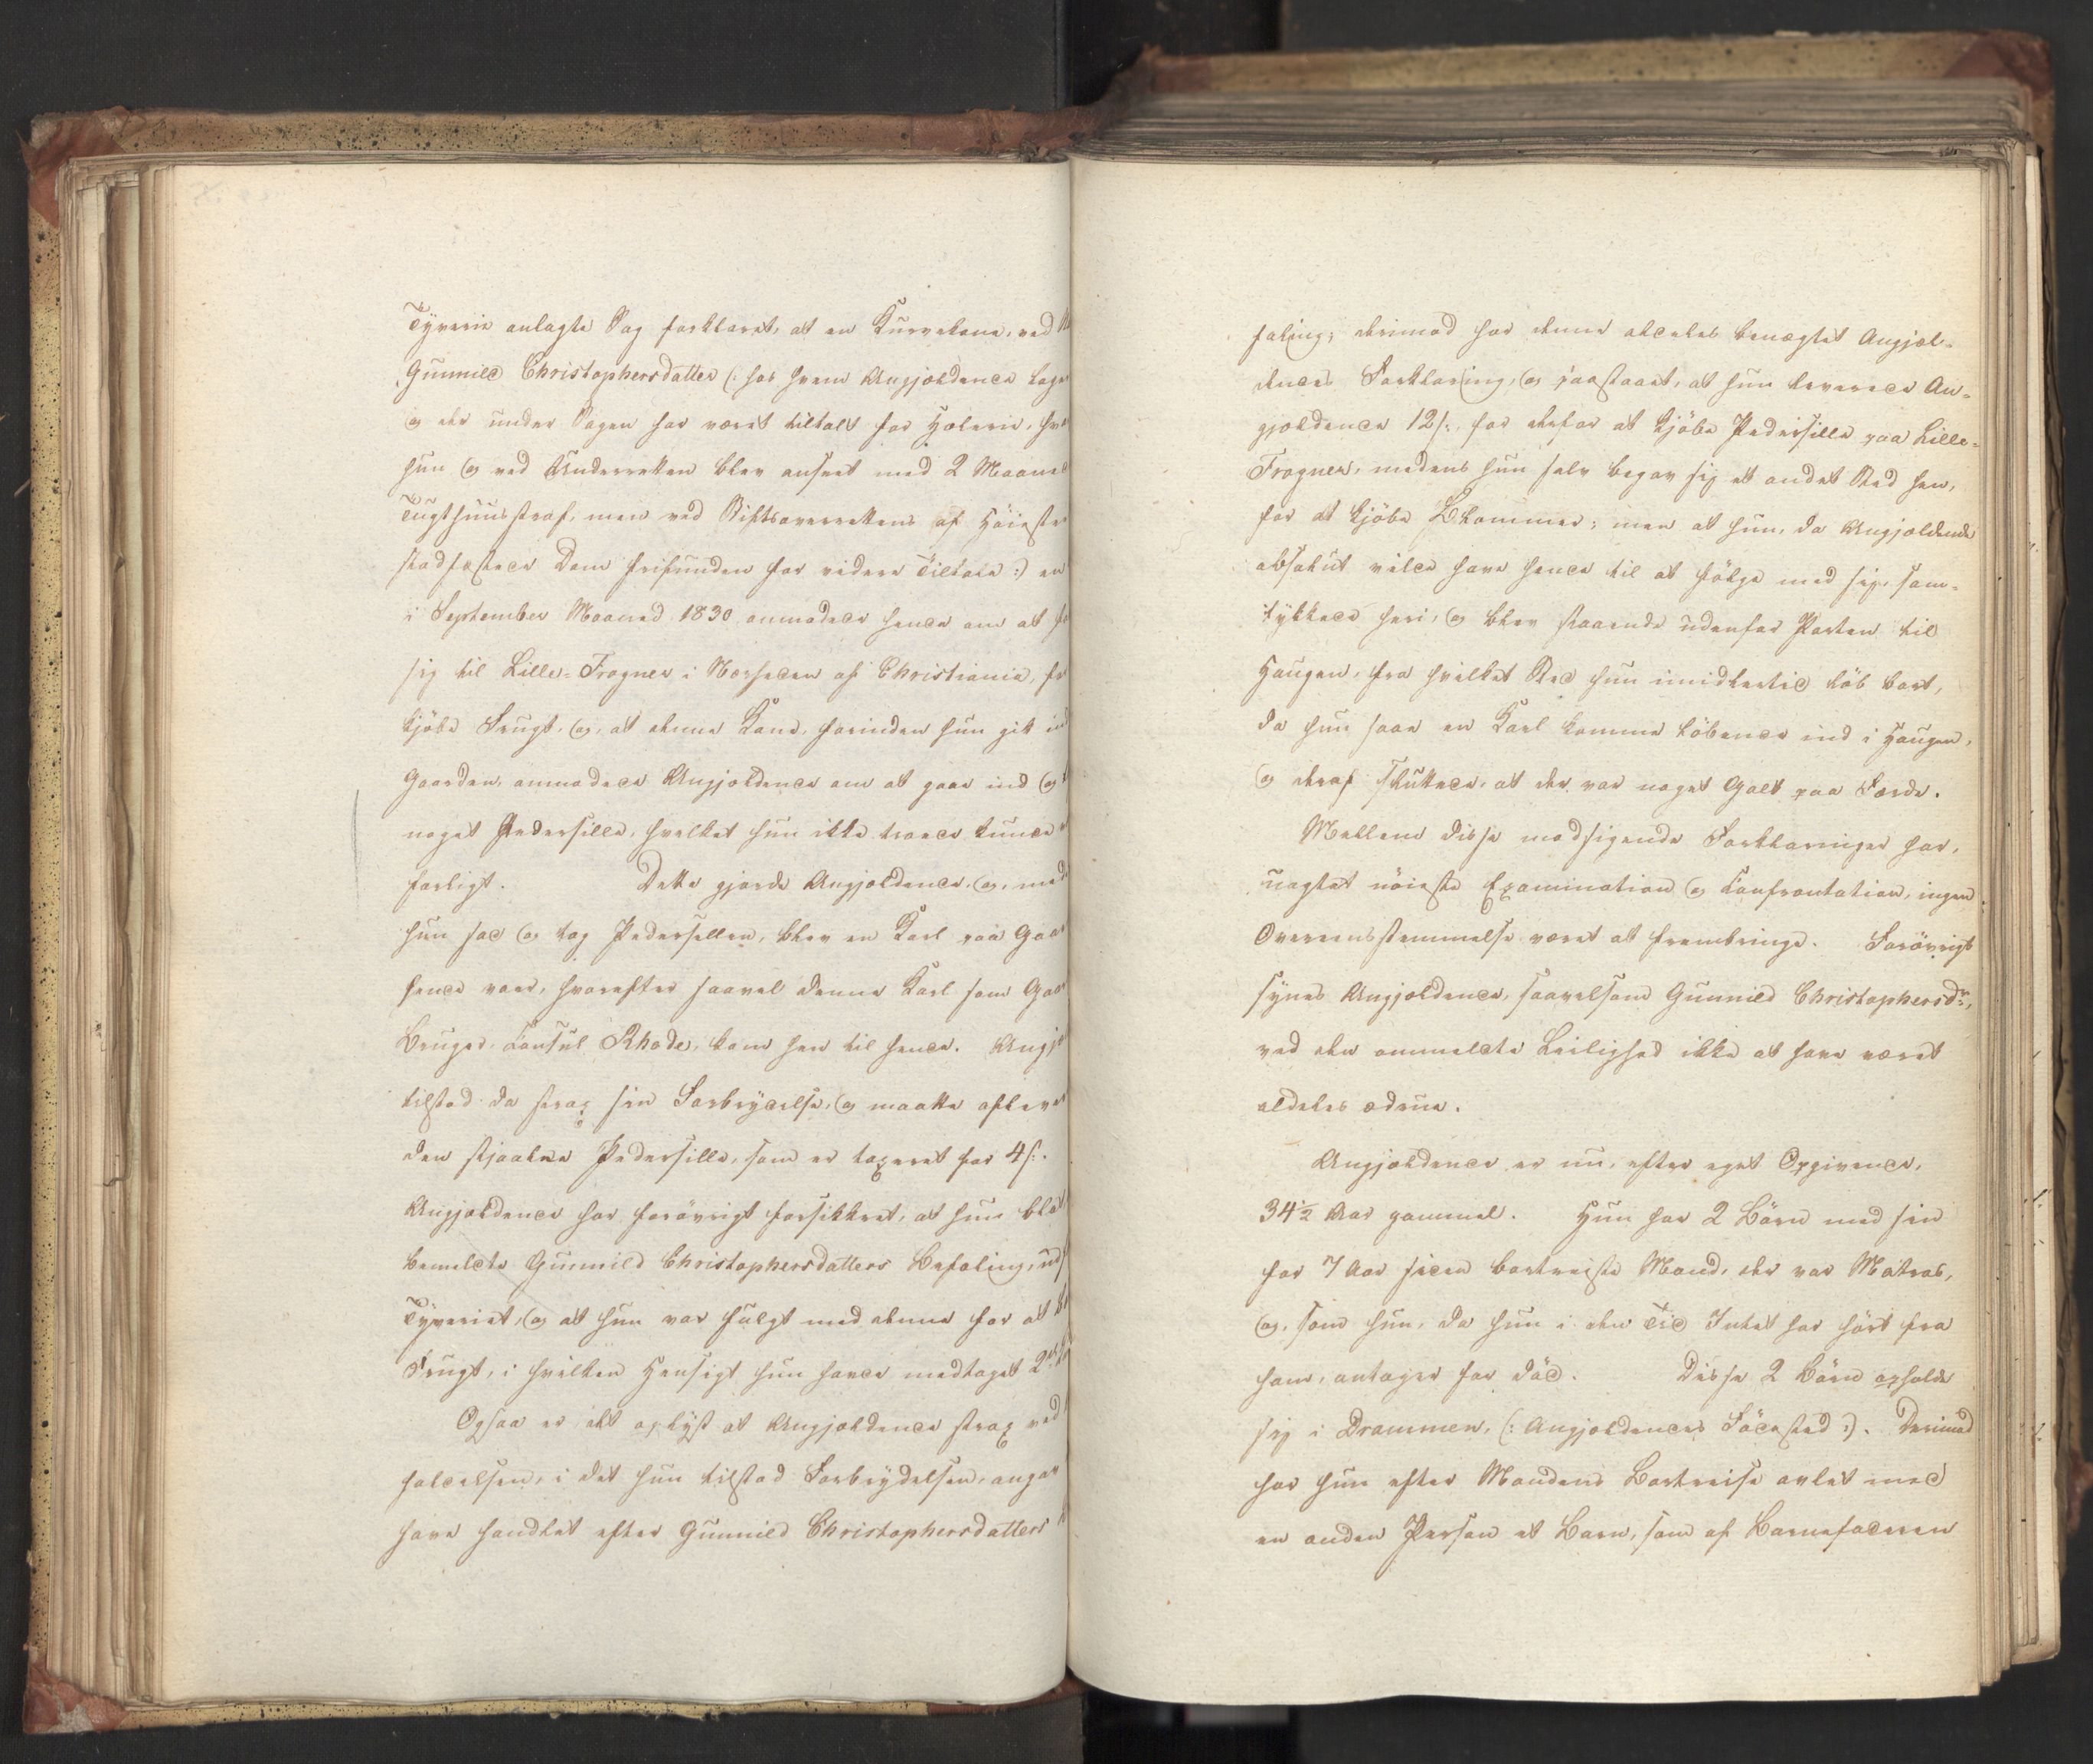 Tyverie anlagte Sag forklaret, at en Kurvekone, ved
Gunnild Christophersdatter (: hos hvem Angjældende
og der under Sagen har været tiltalt for Hæleri,
hun og ved Underretten blev anseet med 2 Maaneds
Tugthuusstraf, men ved Stiftsoverrettens af Høieste
stadfæstede Dom frifunden for videre Tiltale :) en
i September Maaned 1830 anmodede hende om at
sig til Lille-Frogner i Nærheden af Christiania, for
kjöbe Frugt, og, at denne Kone, forinden hun gik ind
Gaarden, anmodede Angjældende om at gaae ind og
noget Pedersille, hvilket hun ikke troede kunde
farligt. Dette gjorde Angjældende, og, med
hun sad og tog Pedersillen, blev en Karl paa Gaar
hende vaer, hvorefter saavel denne Karl som Gaar
Bruger, Consul Rhode, kom hen til hende. Angjæl
tilstod da strax sin Forbrydelse, og maatte afleve
den stjaalne Pedersille, som er taxeret for 4 s.
Angjældende har forøvrigt forsikkret, at hun blot
bemeldte Gunnild Christophersdatters Befaling,
Tyveriet, og at hun var fulgt med denne for at
Frugt, i hvilken Hensigt hun havde medtaget 2
Ogsaa er det oplyst at Angjældende strax ved
holdelsen, i det hun tilstod Forbrydelsen, angav
have handlet efter Gunnild Christophersdatters
faling; derimod har denne aldeles benægtet Angjæl-
dendes Forklaring, og paastaaet, at hun leverede An-
gjældende 12 s. for derfor at kjöbe Pedersille paa Lille-
Frogner, medens hun selv begav sig et andet Sted hen,
for at kjöbe Blommer; men at hun, da Angjældende
absolut vilde have hende til at fölge med sig, sam-
tykkede heri, og blev staaende udenfor Porten til
Haugen, fra hvilket Sted hun imidlertid löb bort,
da hun saae en Karl komme löbende ind i Haugen,
og deraf sluttede, at der var noget Galt paa Færde.
Mellem disse modsigende Forklaringer har,
uagtet nöieste Examination og Confrontation, ingen
Overeensstemmelse været at frembringe. Forövrigt
synes Angjældende, saavelsom Gunnild Christophersdr,
ved den ommeldte Leilighed ikke at have været
aldeles ædrue.
Angjældende er nu, efter eget Opgivende,
34½ Aar gammel. Hun har 2 Börn med sin
for 7 Aar siden bortreiste Mand, der var Matros,
og, som hun, da hun i den Tid Intet har hört fra
ham, antager for död. Disse 2 Börn opholde
sig i Drammen, (: Angjældendes Födested :). Derimod
har hun efter Mandens Bortreise avlet med
en anden Person et Barn, som af Barnefaderen